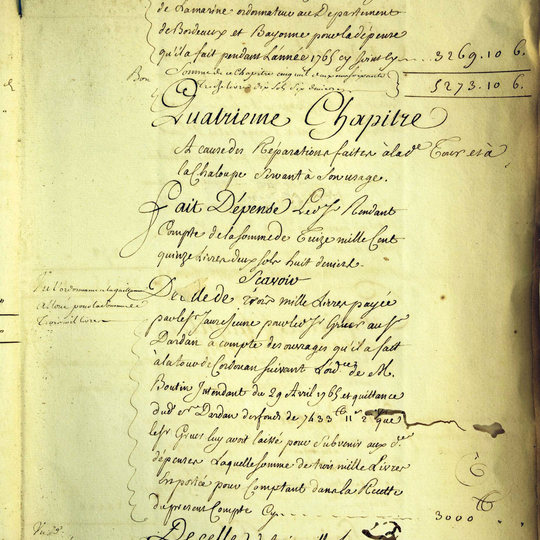 de Lamarine ordonnateur au Departement
de Bordeaux et Bayonne pour la dépense
qu'il a fait pendant L'année 1765 cy Joint Cy ... 3269.10 6.
Bon Somme de ce Chapitre cinq mil deux
livres dix sols six deniers 5273.10 6.
Quatrieme Chapitre
A cause des Réparations faites à lad.e Tour et à
la Chaloupe Servant à Son usage.
Fait Dépense Led. Sr. Rendant
Compte de la somme de Treize mille Cent
quinze Livres deux sols huit deniers.
Scavoir
De celle de trois mille Livres payée
par le Sr. Jaure Jeune pour led. Sr. Gruer au Sr.
Dardan à compte des ouvrages qu'il a fait
à la tour de Cordouan suivant L'ord.ce de M.
Boutin Intendant du 29 Avril 1765 et quittance
dud. Sr. Dardan des fonds de 7433.tt 11.s 2 que
le Sr. Gruer luy avoit laissé pour subvenir aux d.es
dépenses Laquelle somme de trois mille Livres
Emportée pour Comptant dans la Recette
du present Compte Cy ... 3000.tt
Vu l'ordonnance et la quittance
trois mil livres
De celle